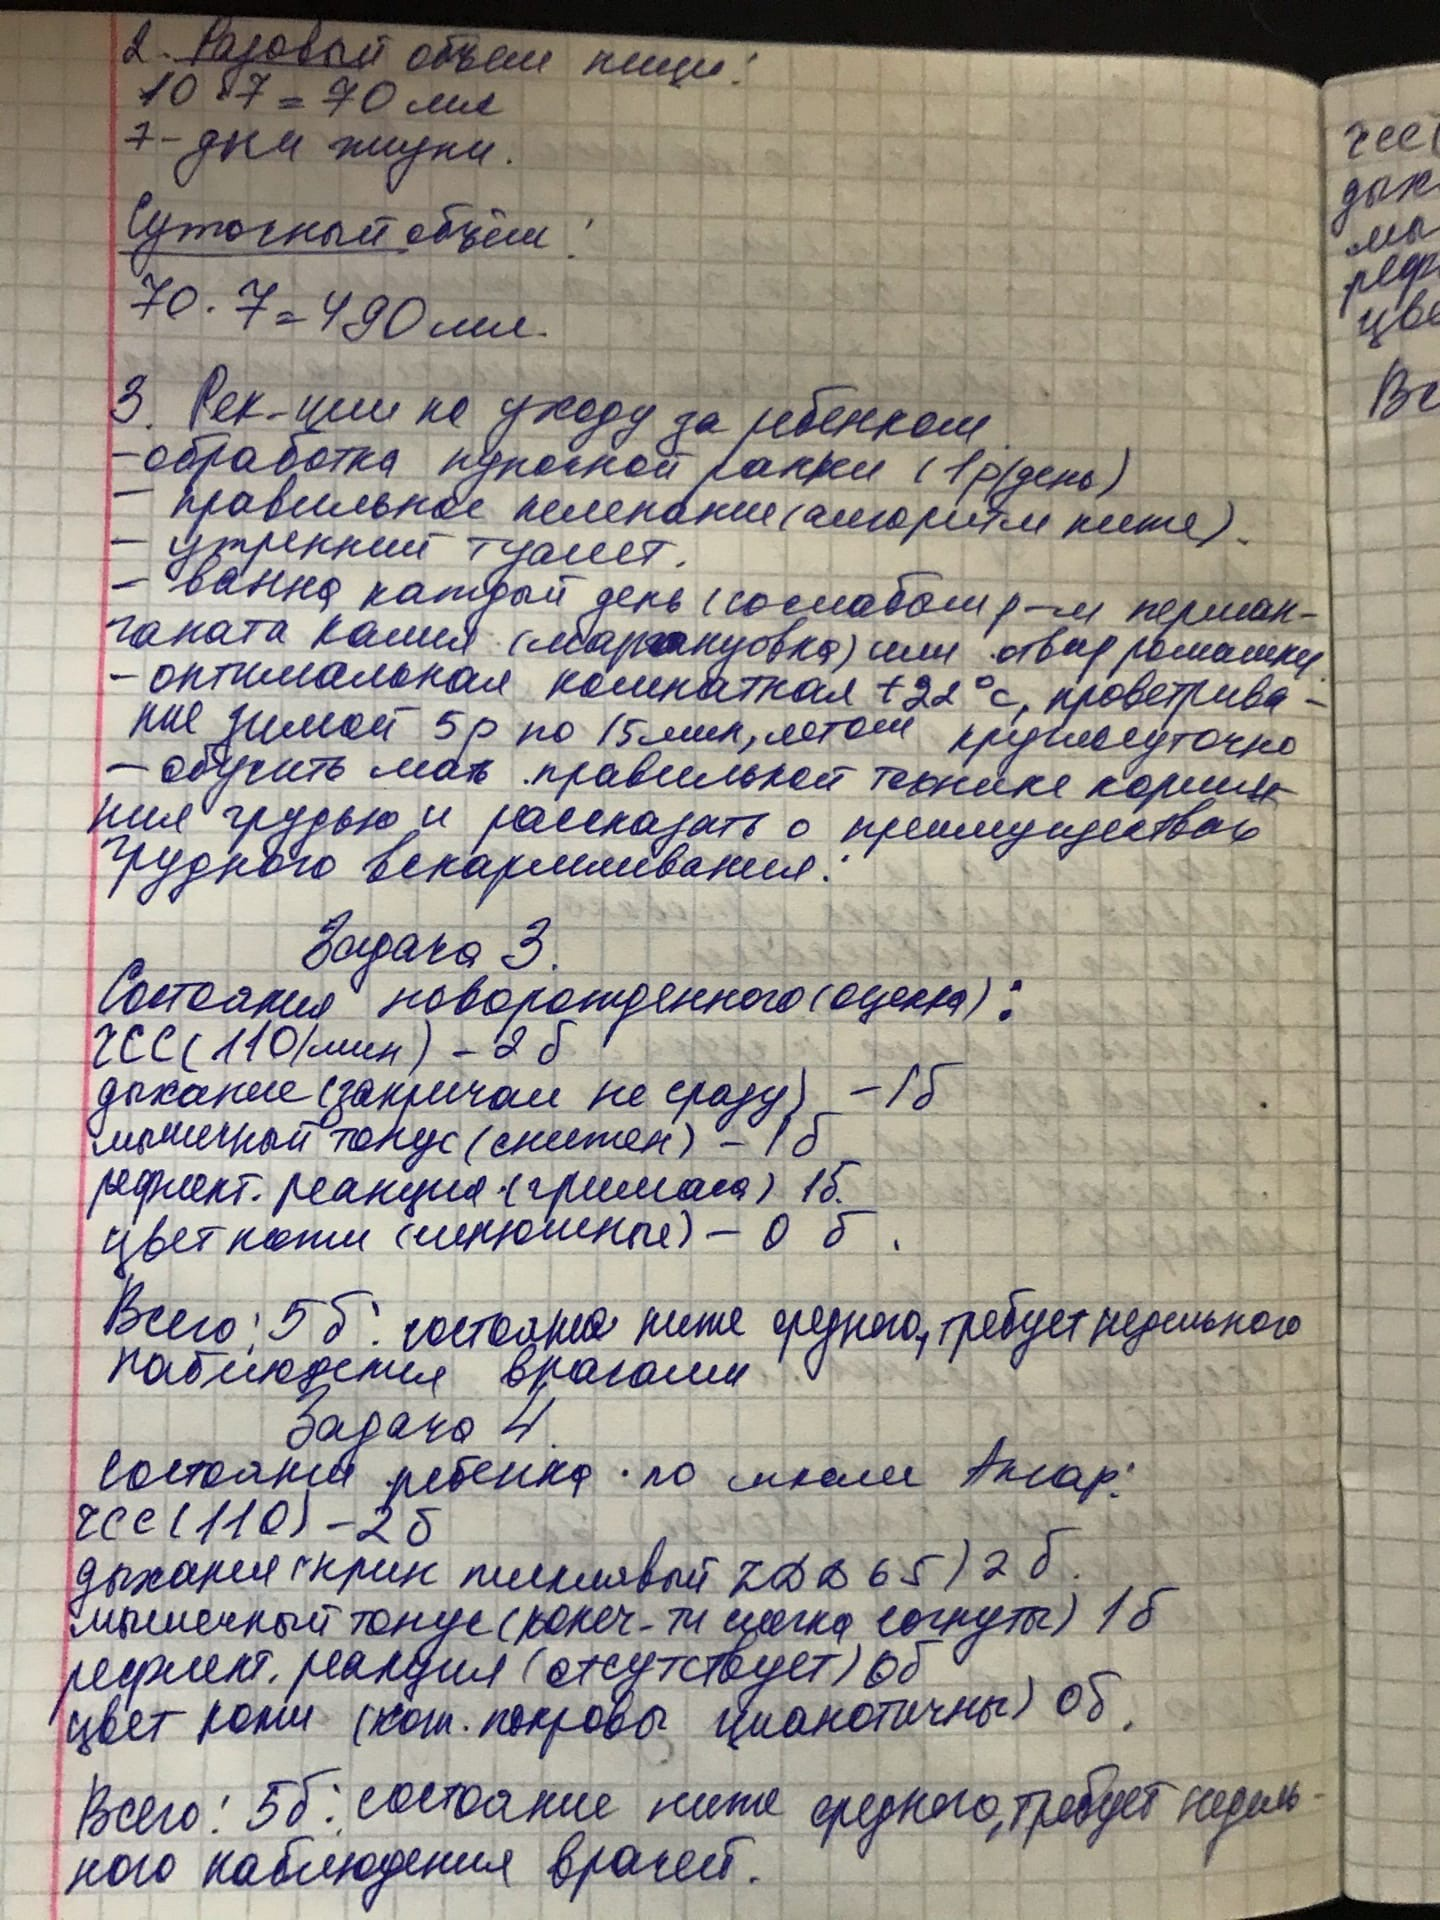 2. Разовый объем пищи:
10 · 7 = 70 мл
7 - дни жизни.
Суточный объём:
70 · 7 = 490 мл.
3. Рек-ции по уходу за ребенком.
- обработка пупочной ранки (1 р/день)
- правильное пеленание (алгоритм ниже).
- утренний туалет.
- ванна каждый день (со слабым р-м перман-
ганата калия (марганцовка) или отвар ромашки.
- оптимальная комнатная +22°С, проветрива-
ние зимой 5р по 15 мин, летом круглосуточно
- обучить мать правильной технике кормле-
ния грудью и рассказать о преимуществах
грудного вскармливания.
Задача 3.
Состояния новорожденного (оценка):
ЧСС (110/мин) - 2 б
дыхание (закричал не сразу) - 1б
мышечный тонус (снижен) - 1б
рефлект. реакция (гримаса) 1б.
цвет кожи (синюшные) - 0 б.
Всего: 5 б: состояние ниже среднего, требует недельного
наблюдения врачами
Задача 4.
Состояния ребенка по шкале Апгар:
ЧСС (110) - 2 б
дыхания (крик писклявый ЧДД 65) 2 б.
мышечный тонус (конеч-ти слегка согнуты) 1б
рефлект. реакция (отсутствует) 0б
цвет кожи (кож. покровы цианотичны) 0б.
Всего: 5б: состояние ниже среднего, требует недель-
ного наблюдения врачей.
ЧСС (
дых
мы
реф
цве
Вс